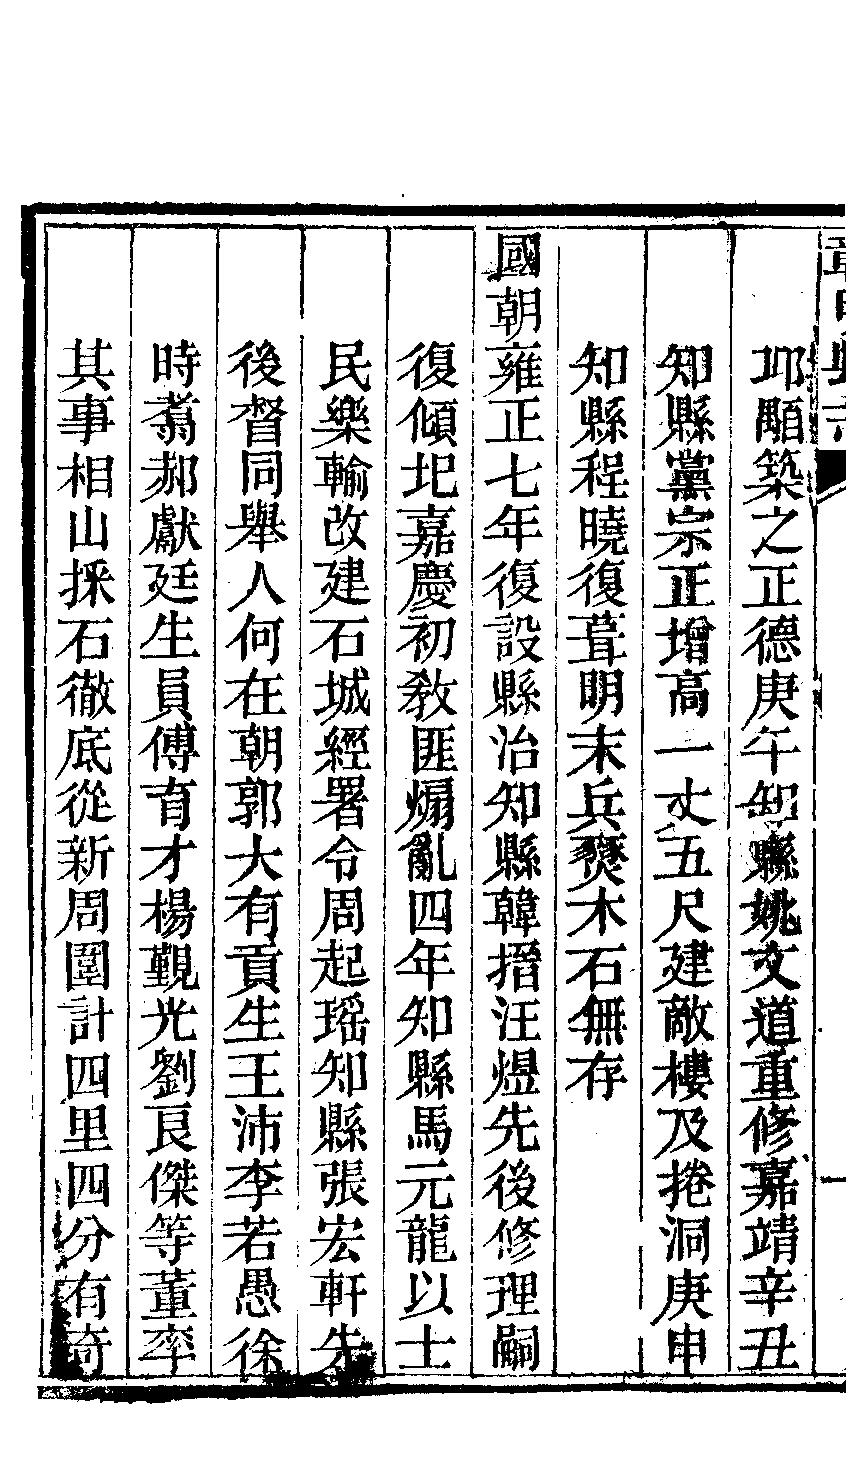 邛顒築之正德庚午知縣姚文道重修嘉靖辛丑
知縣黨宗正增高一丈五尺建敵樓及捲洞庚申
知縣程曉復葺明末兵燹木石無存
國朝雍正七年復設縣治知縣韓搢汪煜先後修理嗣
復傾圮嘉慶初教匪煽亂四年知縣馬元龍以士
民樂輸改建石城經署令周起瑶知縣張宏軒先
後督同舉人何在朝郭大有貢生王沛李若愚徐
時翥郝獻廷生員傅育才楊觀光劉良傑等董率
其事相山採石徹底從新周圍計四里四分有奇